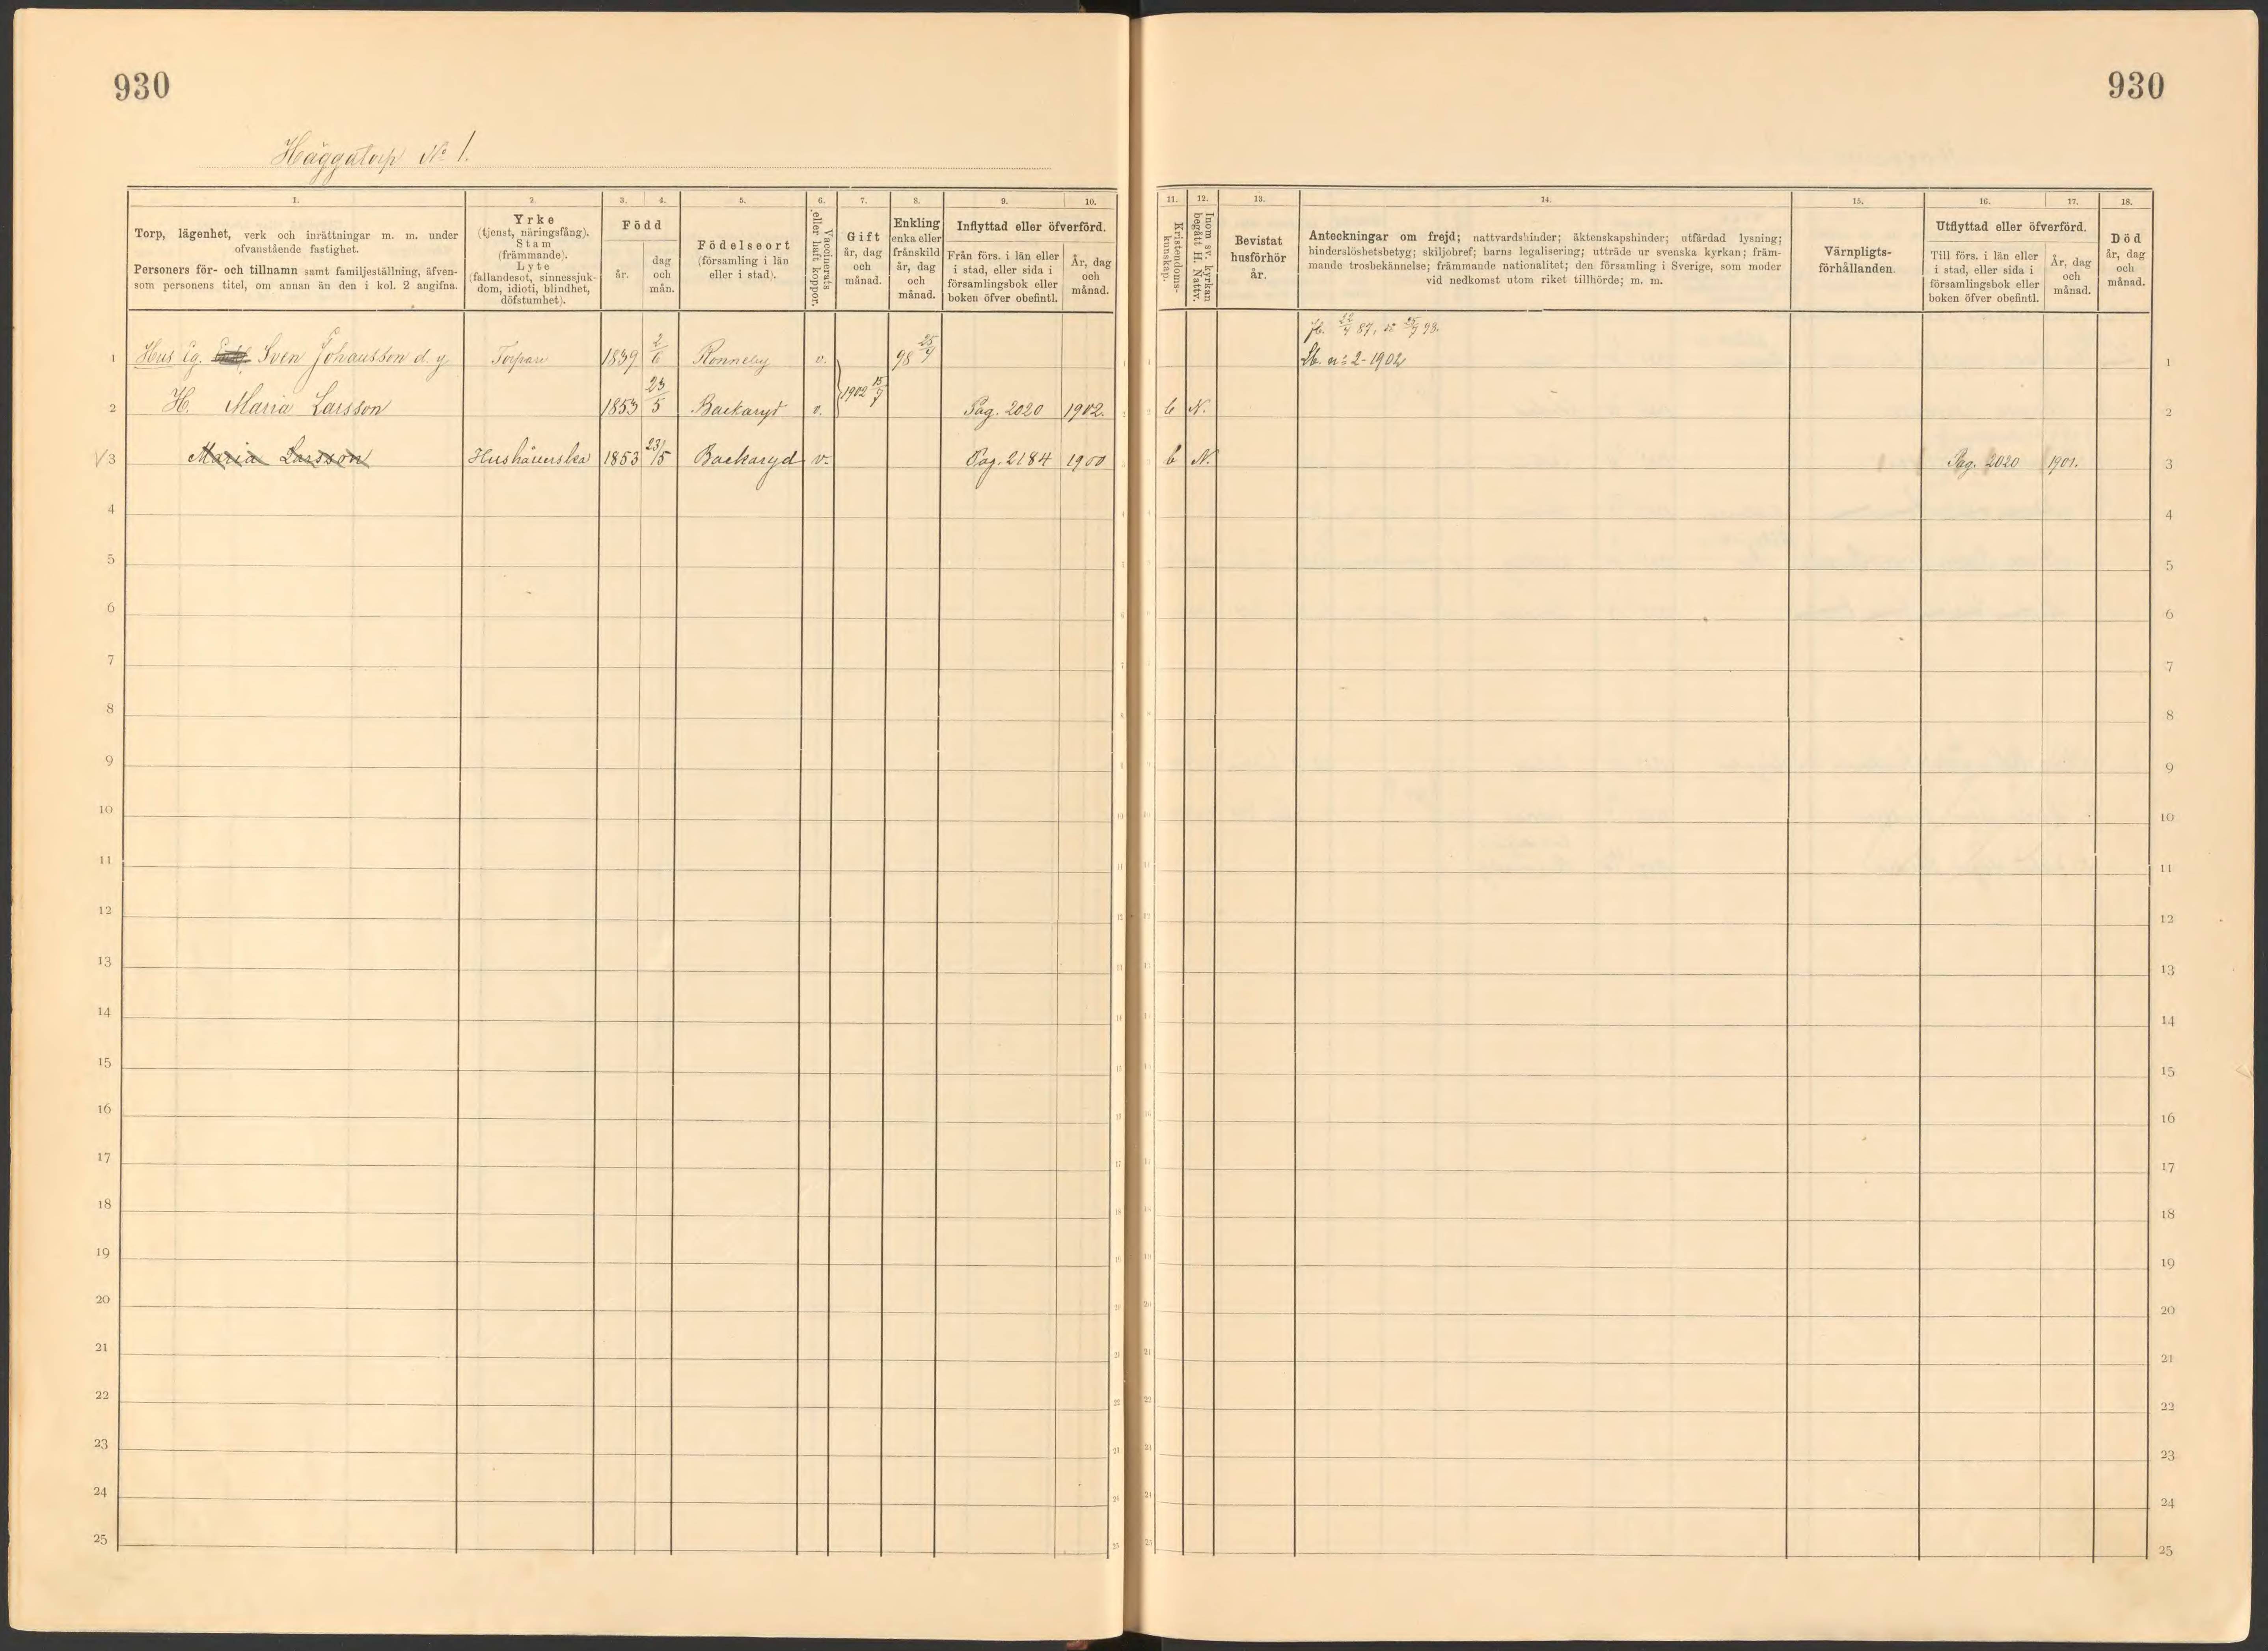 930
930
Häggatorp No 1.
1.
2.
3.
4.
5.
6.
7.
8.
9.
10.
Torp, lägenhet, verk och inrättningar m. m. under
ofvanstående fastighet.
Personers för- och tillnamn samt familjeställning, äfven-
som personens titel, om annan än den i kol. 2 angifna.
Yrke
(tjenst, näringsfång).
Stam
(främmande).
Lyte
(fallandesot, sinnessjuk-
dom, idioti, blindhet,
döfstumhet).
Född
år.
dag
och
mån.
Födelseort
(församling i län
eller i stad).
Vaccinerats
eller haft koppor.
Gift
år, dag
och
månad.
Enkling
enka eller
frånskild
år, dag
och
månad.
Inflyttad eller öfverförd.
Från förs. i län eller
i stad, eller sida i
församlingsbok eller
boken öfver obefintl.
År, dag
och
månad.
11.
12.
13.
14.
15.
16.
17.
18.
Kristendoms-
kunskap.
Inom sv. kyrkan
begått H. Nattv.
Bevistat
husförhör
år.
Anteckningar om frejd; nattvardshinder; äktenskapshinder; utfärdad lysning;
hinderslöshetsbetyg; skiljobref; barns legalisering; utträde ur svenska kyrkan; främ-
mande trosbekännelse; främmande nationalitet; den församling i Sverige, som moder
vid nedkomst utom riket tillhörde; m. m.
Värnpligts-
förhållanden.
Utflyttad eller öfverförd.
Till förs. i län eller
i stad, eller sida i
församlingsbok eller
boken öfver obefintl.
År, dag
och
månad.
Död
år, dag
och
månad.
22/4 87, 25/9 98.
1 Hus Eg. Sven Johansson d. y Torpare 1839 2/6 Ronneby v. 98 25/9 Lb. no 2-1902 1
2 H. Maria Larsson 1853 23/5 Backaryd v. 1902 Pag. 2020 1902. b N. 2
3 Maria Larsson Hushållerska 1853 23/5 Backaryd v. Pag. 2184 1900 b N. Pag. 2020 1901. 3
4 4
5 5
6 6
7 7
8 8
9 9
10 10
11 11
12 12
13 13
14 14
15 15
16 16
17 17
18 18
19 19
20 20
21 21
22 22
23 23
24 24
25 25